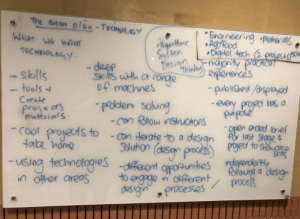 The dream plan - TECHNOLOGY
WHAT WE WANT
TECHNOLOGY
- Skills
- tools +
create
projects
materials
- cool projects to
take home
- using technologies
in other areas
- deep
skills with a range
of machines
- problem solving
- can follow instructions
- can iterate to a design
solution (design process)
- different opportunities
to engage in different
design processes
Algorithmic
System
Design
Thinking
• Engineering • Materials
• Ag/Food
• Digital tech (2 projects)
- majority practical
experiences
- published/displayed
- every project has a
purpose
- open ended brief
for last stage +
project to showcase
skills
independently
following a design
process